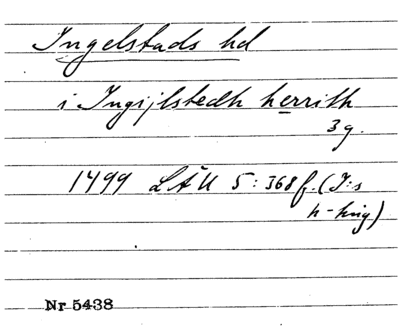 Ingelstads hd
i Ingijlstedh herrith
3 g.
1499 LÄU 5:368 f. (I:s
h-king)
Nr 5438